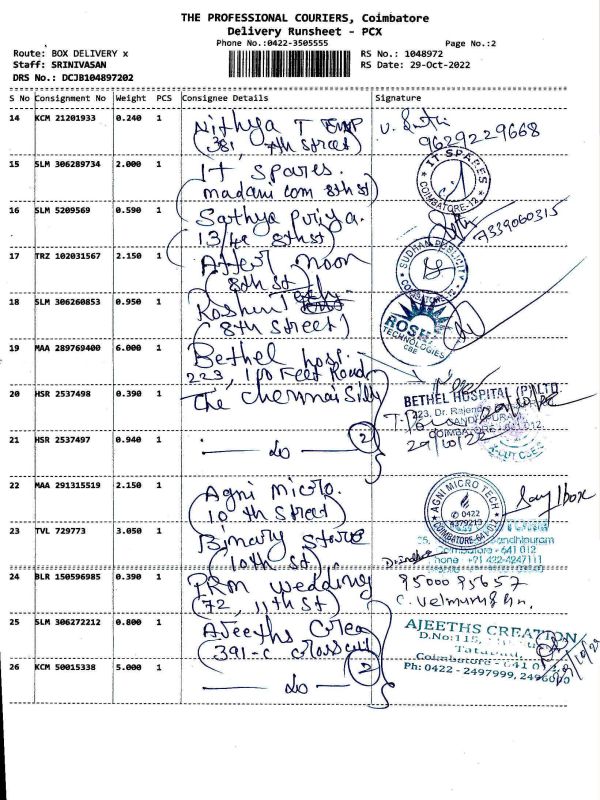 THE PROFESSIONAL COURIERS, Coimbatore
Delivery Runsheet - PCX
Phone No.:0422-3505555 Page No.:2
Route: BOX DELIVERY x RS No.: 1048972
Staff: SRINIVASAN RS Date: 29-Oct-2022
DRS No.: DCJB104897202
S No Consignment No Weight PCS Consignee Details Signature
14 KCM 21201933 0.240 1 Nithya T
(381, 7th Street)
9629229668
15 SLM 306289734 2.000 1 IT Spares.
(madani com 8th st)
IT SPARES
COIMBATORE-12
16 SLM 5209569 0.590 1 Sathya Priya.
13/4e 8th st
7339060315
17 TRZ 102031567 2.150 1 After noon
(8th st)
18 SLM 306260853 0.950 1 Roshni Tech
(8th Street)
ROSHNI
TECHNOLOGIES
CBE
19 MAA 289769400 6.000 1 Bethel hosp.
223, 100 Feet Road
BETHEL HOSPITAL (P) LTD
223, Dr. Rajendra
COIMBATORE - 641 012.
29/10/22
20 HSR 2537498 0.390 1 The Chennai Silks
21 HSR 2537497 0.940 1 — do — 2
22 MAA 291315519 2.150 1 Agni Micro.
(10th Street)
AGNI MICRO TECH
0422
4379213
COIMBATORE-641 012
23 TVL 729773 3.050 1 Bimary Store
(10th st)
Gandhipuram
Coimbatore - 641 012
Phone : +91 422-4247111
24 BLR 150596985 0.390 1 PRM wedding
(72, 11th St)
95000 95657
C. Velmurugan.
25 SLM 306272212 0.800 1 Ajeeths Crea
(391-C crosscut
AJEETHS CREATION
D.No:115,
Tatabad,
Coimbatore - 641 012
Ph: 0422 - 2497999, 2496000
26 KCM 50015338 5.000 1 — do — 2